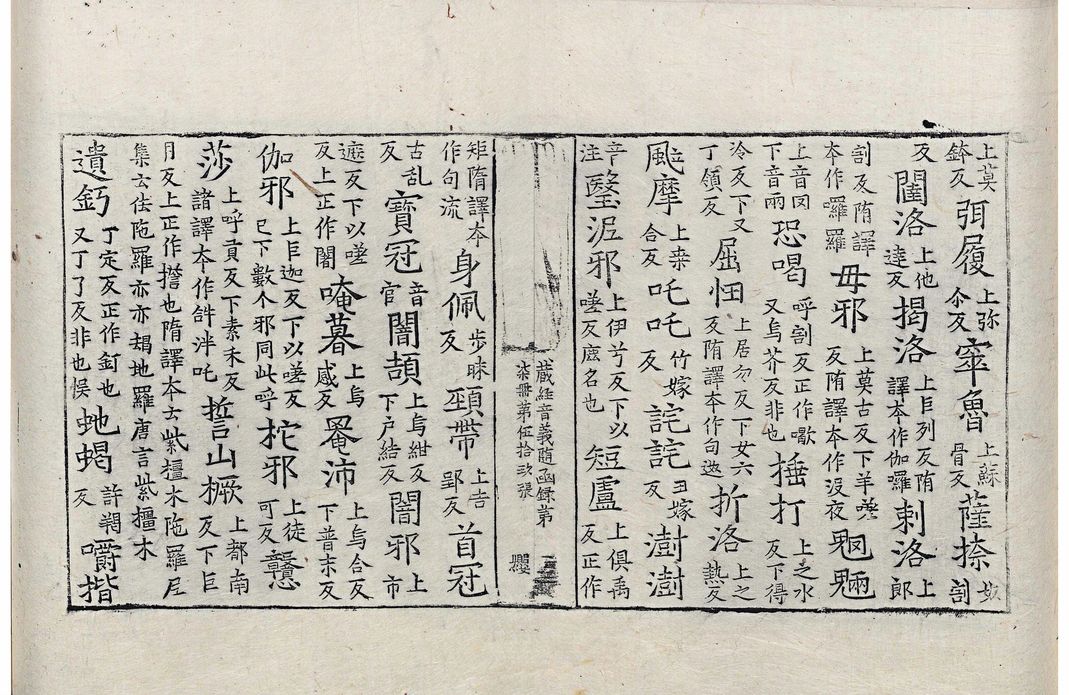 上莫鉢反弭履上弥尒反窣魯上蘇骨反薩捺奴割
反闥洛上他達反揭洛上巨列反隋譯夲作伽羅剌洛上郎
割反隋譯夲作囉羅毋邪上莫古反下羊嗟反隋譯夲作没夜魍魎
上音冈下音兩恐喝呼割反正作嚈又烏芥反非也捶打上之水反下得
冷反下又丁領反屈忸上居勿反下女六反隋譯夲作句折洛上之熱反
颩摩上桒合反吒吒竹嫁反詫詫丑嫁反澍澍
注瑿泥邪上伊兮反下以嗟反鹿名也短盧上俱禹反正作
藏経音義随函録第柒冊第伍拾玖張
矩隋譯夲作句流身佩歩昧反頸帶上吉郢反首冠
古乱反寳冠音官闇頡上烏紺反下户結反闇邪上市
遮反下以嗟反上正作闍唵暮上烏感反罨沛上烏合反下普末反
伽邪上巨迦反下以嗟反已下數个邪同此呼柁邪上徒可反戇
莎上呼貢反下素末反諸譯夲作䛁泮吒誓山橛上都南反下巨
月反上正作擔也隋譯夲云紫檀木陁羅尼集云佉陁羅亦亦朅地羅唐言紫檀木
遺鈣丁定反正作釘也又丁了反非也悮虵蝎許羯反嚼揩